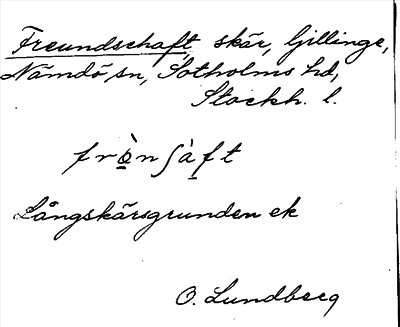 Freundschaft, skär, Gillinge,
Nämdö sn, Sotholms hd,
Stockh. l.
frò̤nʃà̤ft
Långskärsgrunden ek
O. Lundberg